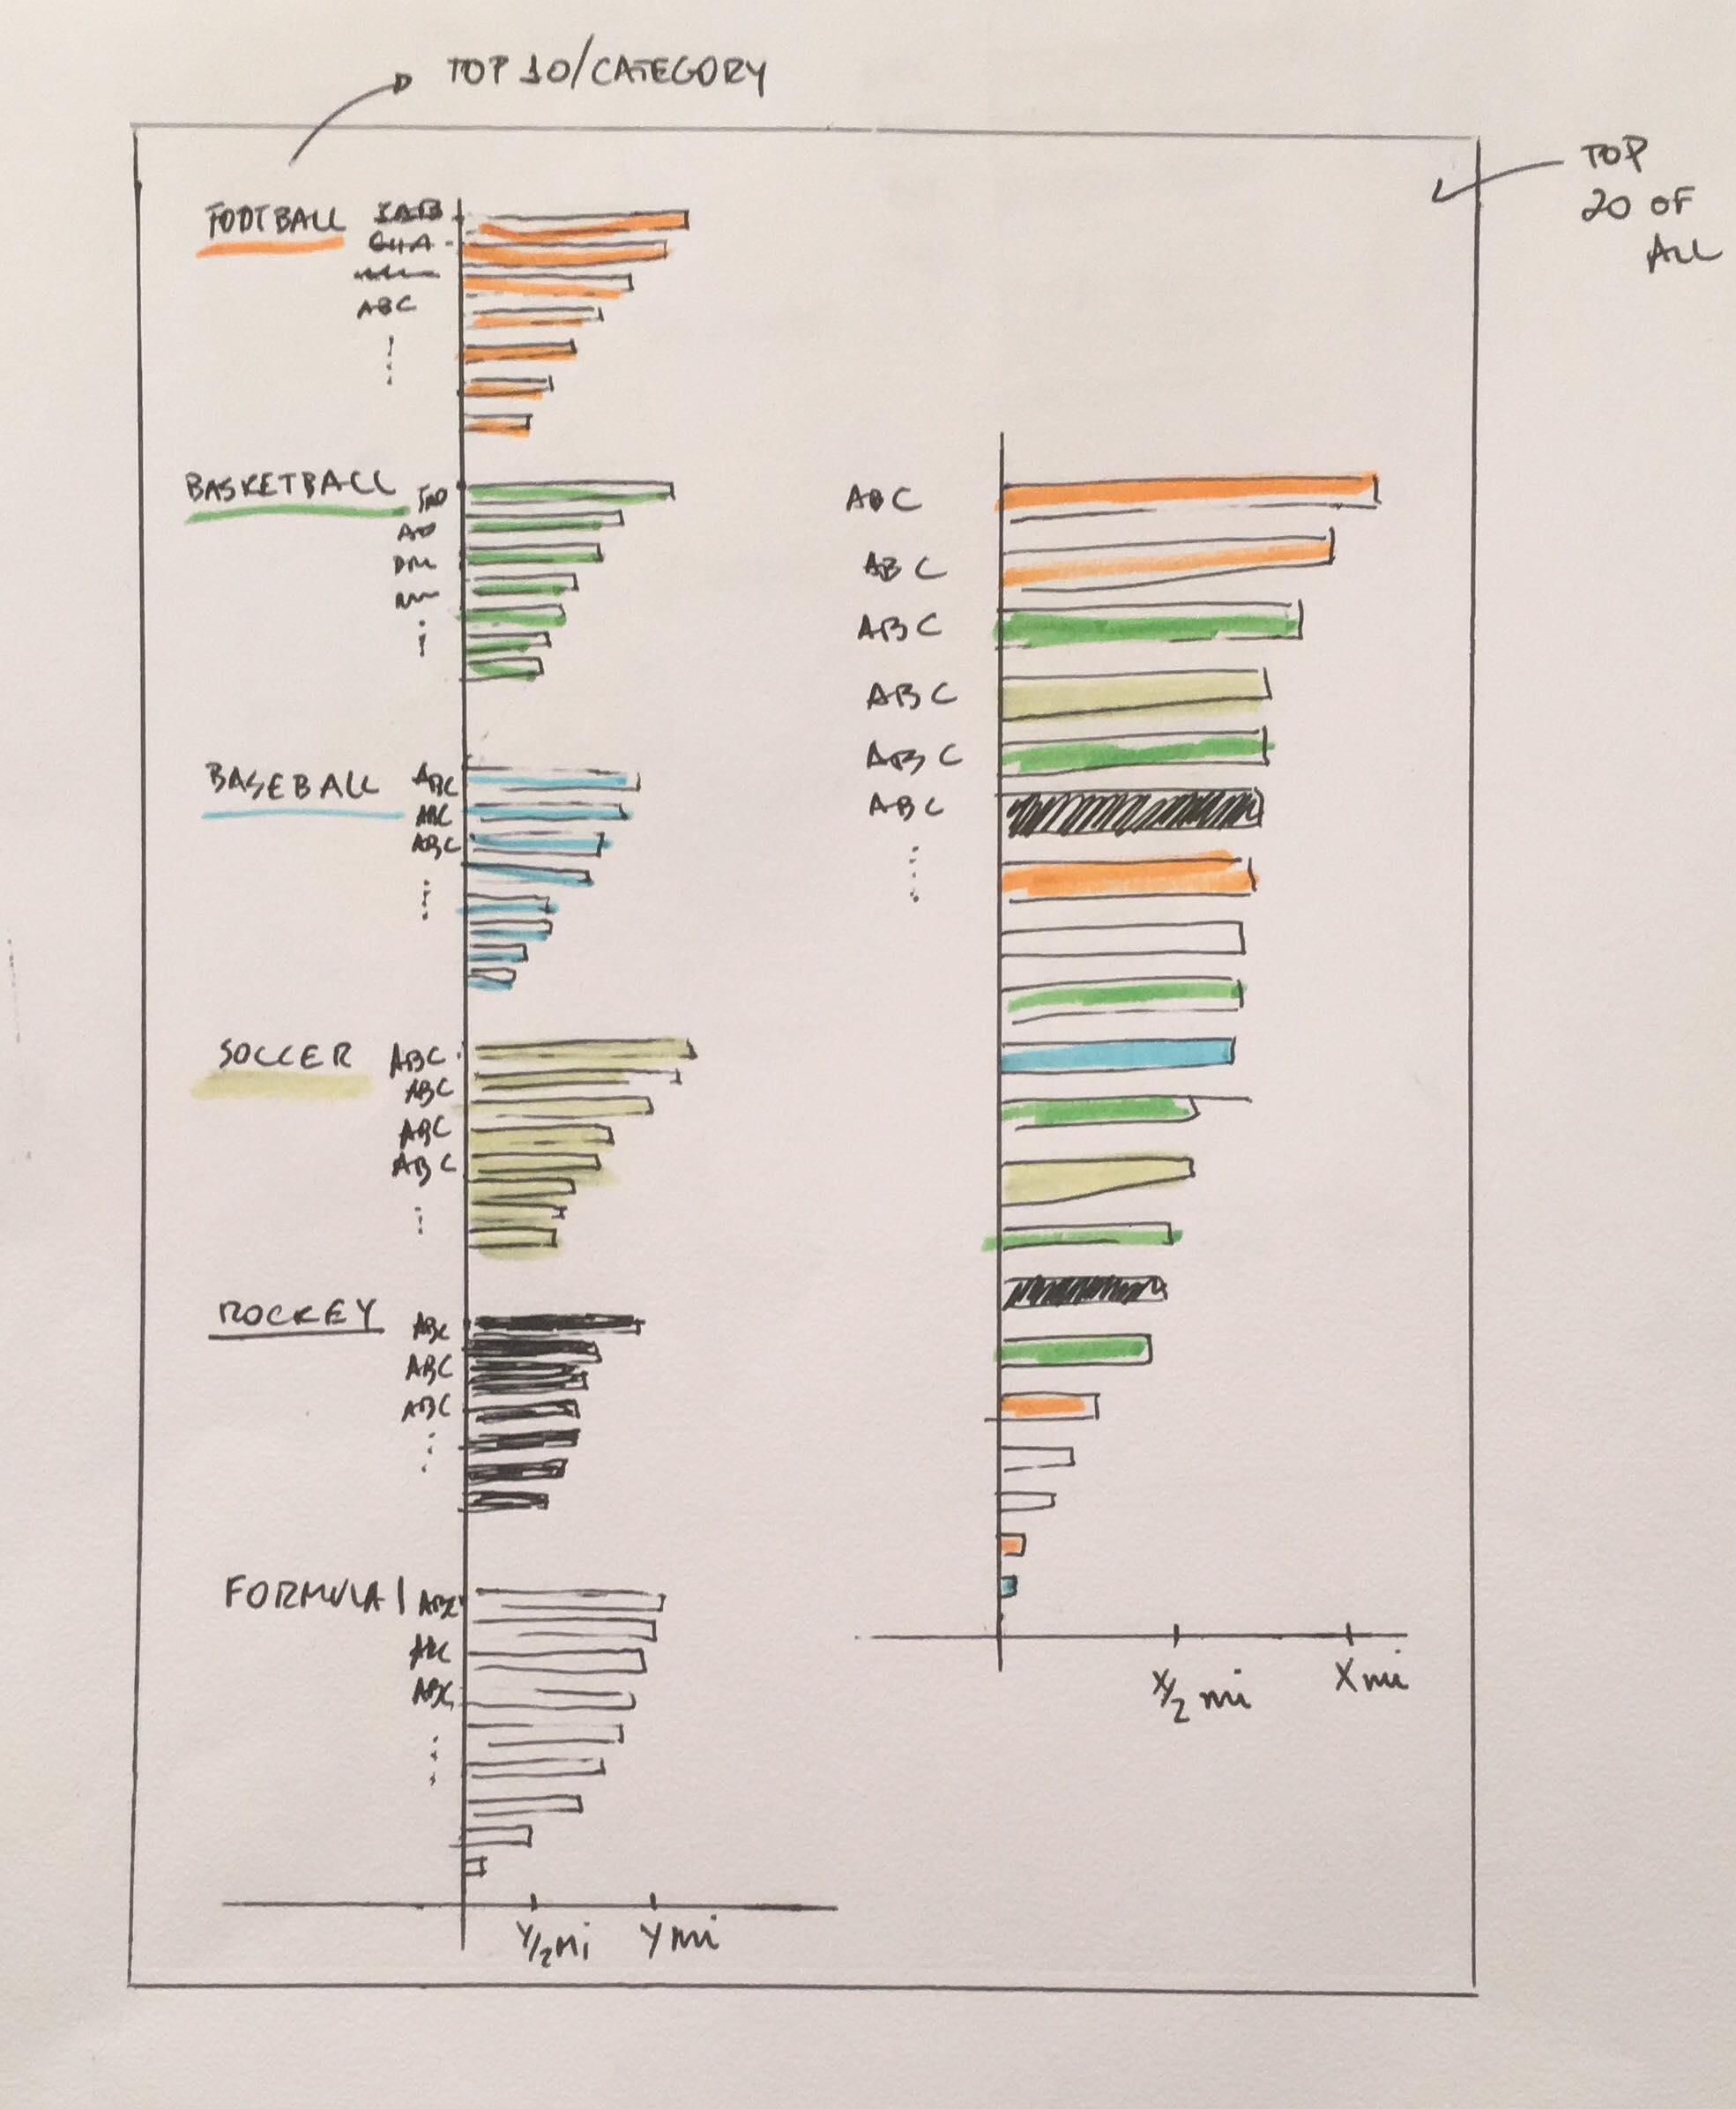 TOP 10/CATEGORY
TOP
20 OF
ALL
FOOTBALL
ABC
BASKETBALL
BASEBALL ABC
ABC
ABC
SOCCER ABC
ABC
ABC
ABC
ROCKEY ABC
ABC
ABC
FORMULA 1 ABC
ABC
ABC
Y/2 mi Y mi
ABC
ABC
ABC
ABC
ABC
ABC
X/2 mi X mi